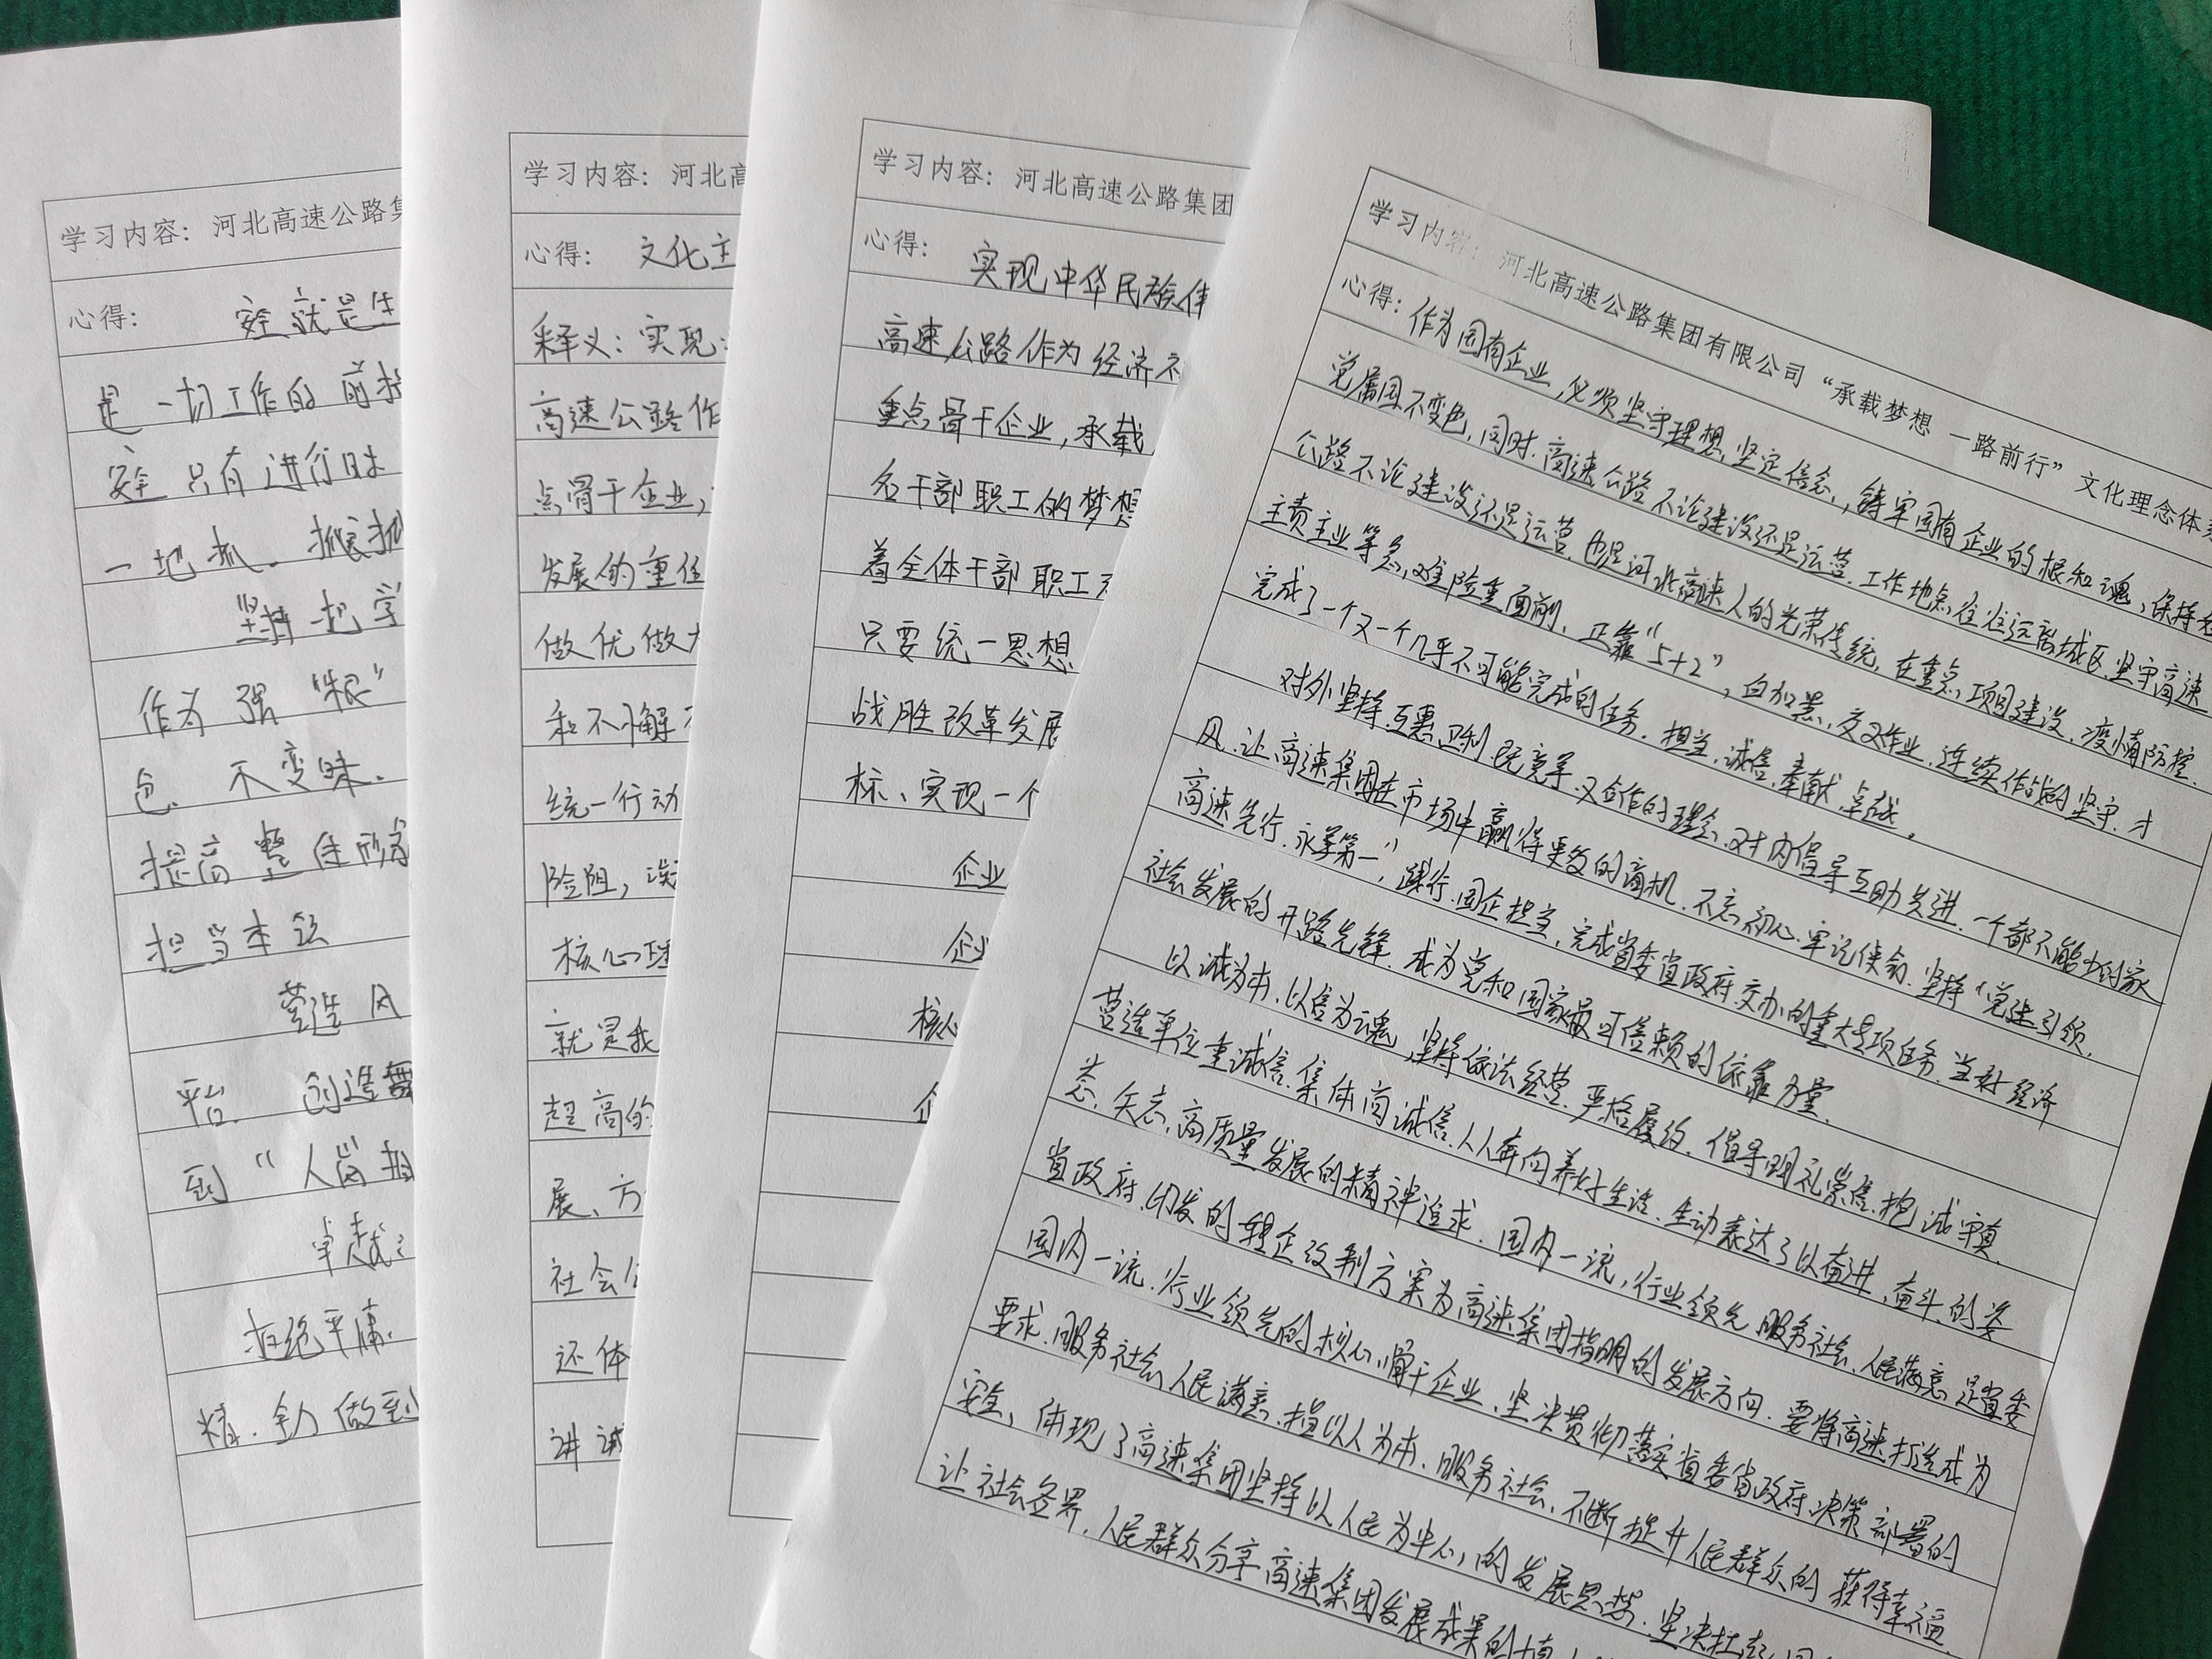 学习内容：河北高速公路集
心得：安全就是生
是一切工作的前提
安全只有进行时
一地抓。
坚持把学
作为强“根”
色、不变味。
提高整体形象
担当本领
营造风
平台、创造舞
到“人尚
卓越
拒绝平庸、
精、全力做到
学习内容：河北高
心得：文化主
释义：实现
高速公路作
点骨干企业，
发展的重任
做优做大
和不懈
统一行动
险阻，
核心理
就是我
超高的
展、方
社会
还体
讲诚
学习内容：河北高速公路集团
心得：实现中华民族伟
高速公路作为经济
重点骨干企业，承载
名干部职工的梦想
着全体干部职工
只要统一思想
战胜改革发展
标、实现一个
企业
企业
核心
企
学习内容：河北高速公路集团有限公司“承载梦想 一路前行”文化理念体系
心得：作为国有企业，必须坚守理想，坚定信念，铸牢国有企业的根和魂，保持
党属国不变色，同时，高速公路不论建设还是运营，工作地点往往远离城区，坚守高速
公路不论建设还是运营，也是河北高速人的光荣传统，在重点项目建设，疫情防控，
主责主业等急、难、险、重面前，正靠“5+2”，白加黑，交叉作业，连续作战的坚守，才
完成了一个又一个几乎不可能完成的任务。担当，诚信，奉献，卓越。
对外坚持互惠、既竞争又合作的理念，对内倡导互助共进，一个都不能少的家
风，让高速集团在市场中赢得更多的商机，不忘初心，牢记使命，坚持“党建引领，
高速先行，永争第一”，践行国企担当，完成省委省政府交办的重大专项任务，当好经济
社会发展的开路先锋，成为党和国家最可信赖的依靠力量。
以诚为本，以信为魂，坚持依法经营，严格履约，倡导明礼崇信，抱诚守真，
营造单位重诚信，集体尚诚信，人人奔向美好生活，生动表达了以奋进，奋斗的姿
态，矢志高质量发展的精神追求。国内一流，行业领先，服务社会，人民满意，是省委
省政府印发的转企改制方案为高速集团指明的发展方向，要将高速打造成为
国内一流，行业领先的核心骨干企业，坚决贯彻落实省委省政府决策部署的
要求，服务社会人民满意，指以人为本，服务社会，不断提升人民群众的获得幸福
安全，体现了高速集团坚持以人民为中心的发展思想，坚决扛起
让社会各界，人民群众分享高速集团发展成果的